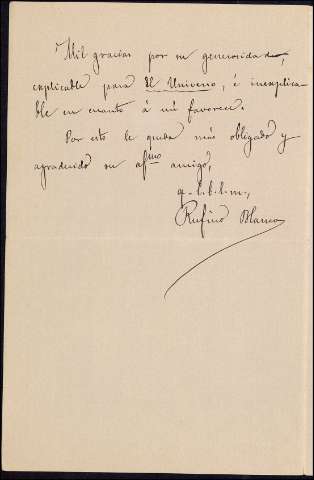 Mil gracias por su generosidad,
explicable para El Universo, é inexplica-
ble en cuanto á mi favorece.
Por esto le queda más obligado y
agradecido su afmo amigo,
q. l. b. l. m.,
Rufino Blanco